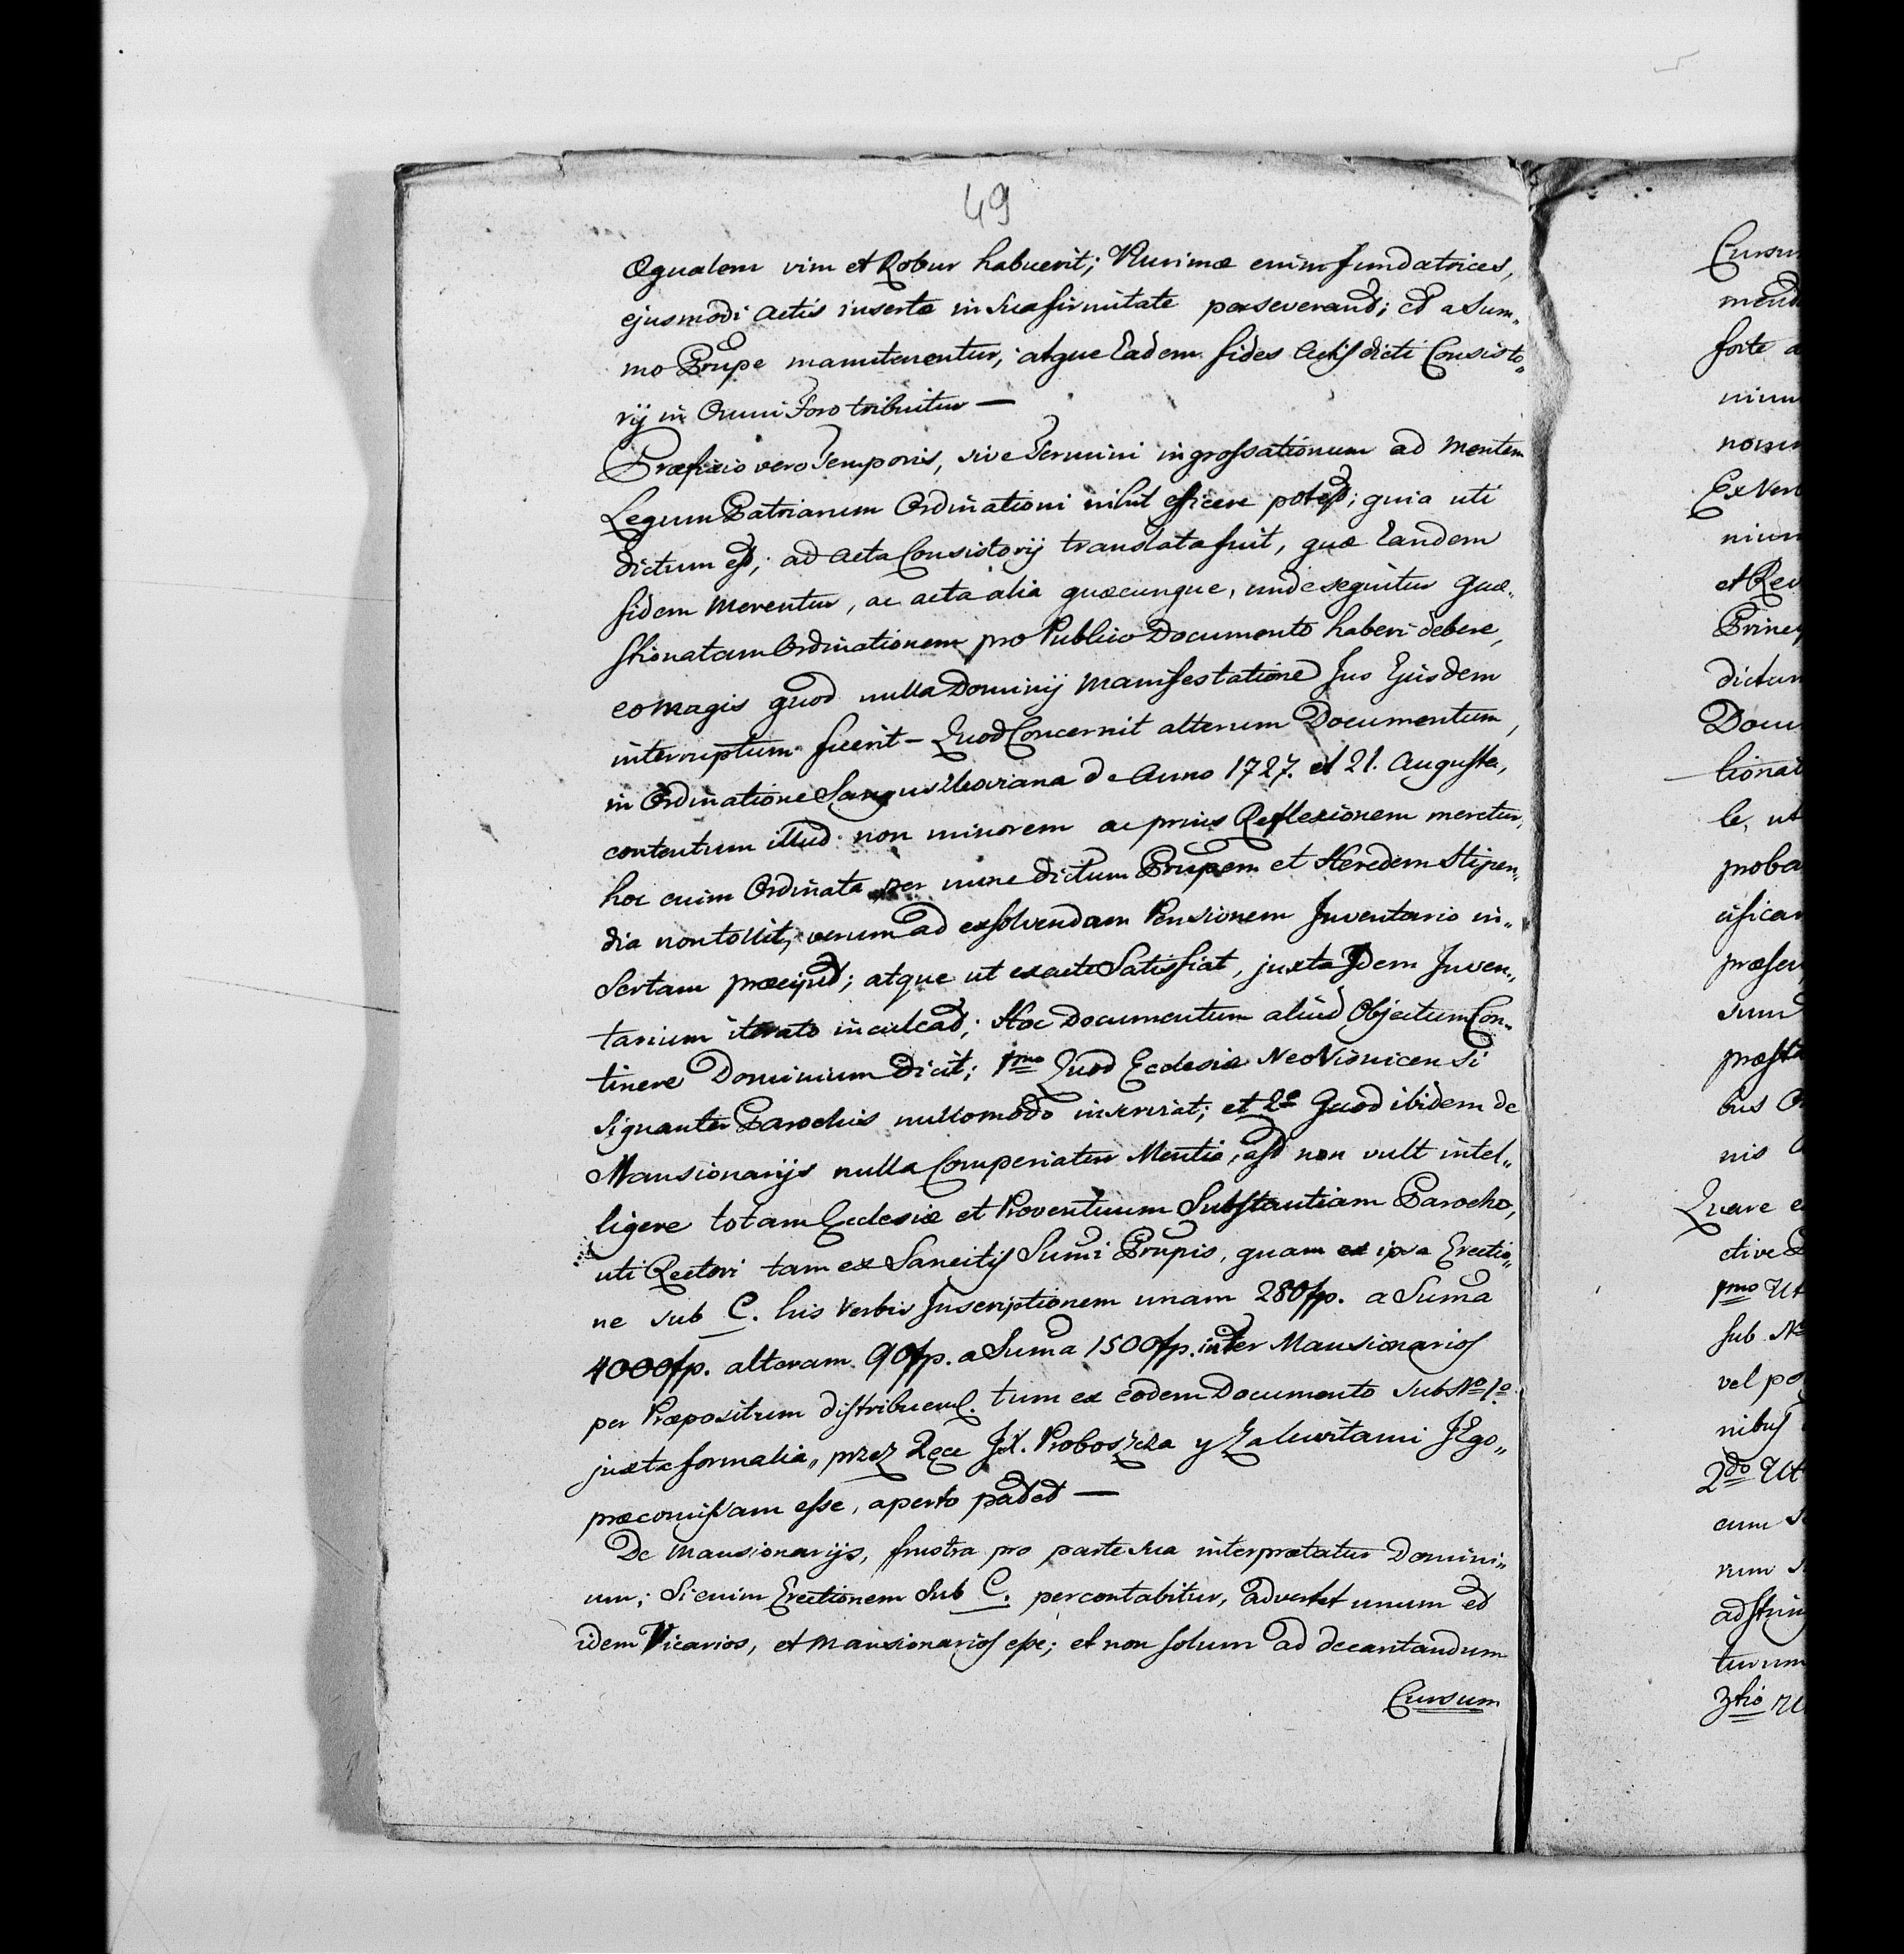 49
Æqualem vim et Robur habuerit; Plurimæ enim fundatrices,
ejusmodi Actis insertæ in sua firmitate perseverant; et a Sum„
mo Prupe manutenentur, atque Eadem fides Actis dicti Consisto„
rij in Omni Foro tribuitur —
Præfixio vero Temporis, sive Termini ingrossationum ad mentem
Legum Patriarum Ordinationi nihil efficere potest; quia uti
dictum est, ad Acta Consistorij translata fuit, quæ Eandem
fidem merentur, ac acta alia quæcunque, unde sequitur quæ„
stionatam Ordinationem pro Publico Documento haberi debere,
eo magis quod nulla Dominij manifestatione Jus Ejusdem
interruptum fuerit — Quod Concernit alterum Documentum,
in Ordinatione Sanguszkoviana de Anno 1727. et 21. Augusta,
contentum illud non minorem ac prius Reflexionem meretur,
hoc enim Ordinata per nunc dictum Prupem et Heredem Stipen„
dia non tollit, verum ad exsolvendam Pensionem Inventario in„
sertam præcipit; atque ut exacte Satisfiat, juxta Idem Inven„
tarium iterato inculcat; Hoc Documentum aliud Objectum Con„
tinere Dominium dicit; 1mo Quod Ecclesiæ NeoVisnicensi
signanter Parochis nullo modo inserviat; et 2o Quod ibidem de
Mansionarijs nulla Comperiatur Mentio, ast non vult intel„
ligere totam Ecclesiæ et Proventuum Substantiam Parocho,
uti Rectori tam ex Sancitis Sumi Prupis, quam ex ipsa Erectio„
ne sub C. his verbis Inscriptionem unam 280 fp. a Suma
4000 fp. alteram 90 fp. a Suma 1500 fp. inter Mansionarios
per Præpositum distribuend. tum ex eodem Documento sub No 1o
juxta formalia„ przez Ręce JX. Proboszcza y Zakwitami JEgo„
præcomissam esse, aperto patet —
De Mansionarijs, frustra pro parte sua interpretatur Domini„
um; Si enim Erectionem Sub C. percontabitur, advertet unum et
idem Vicarios, et Mansionarios esse; et non solum ad decantandum
Cursum